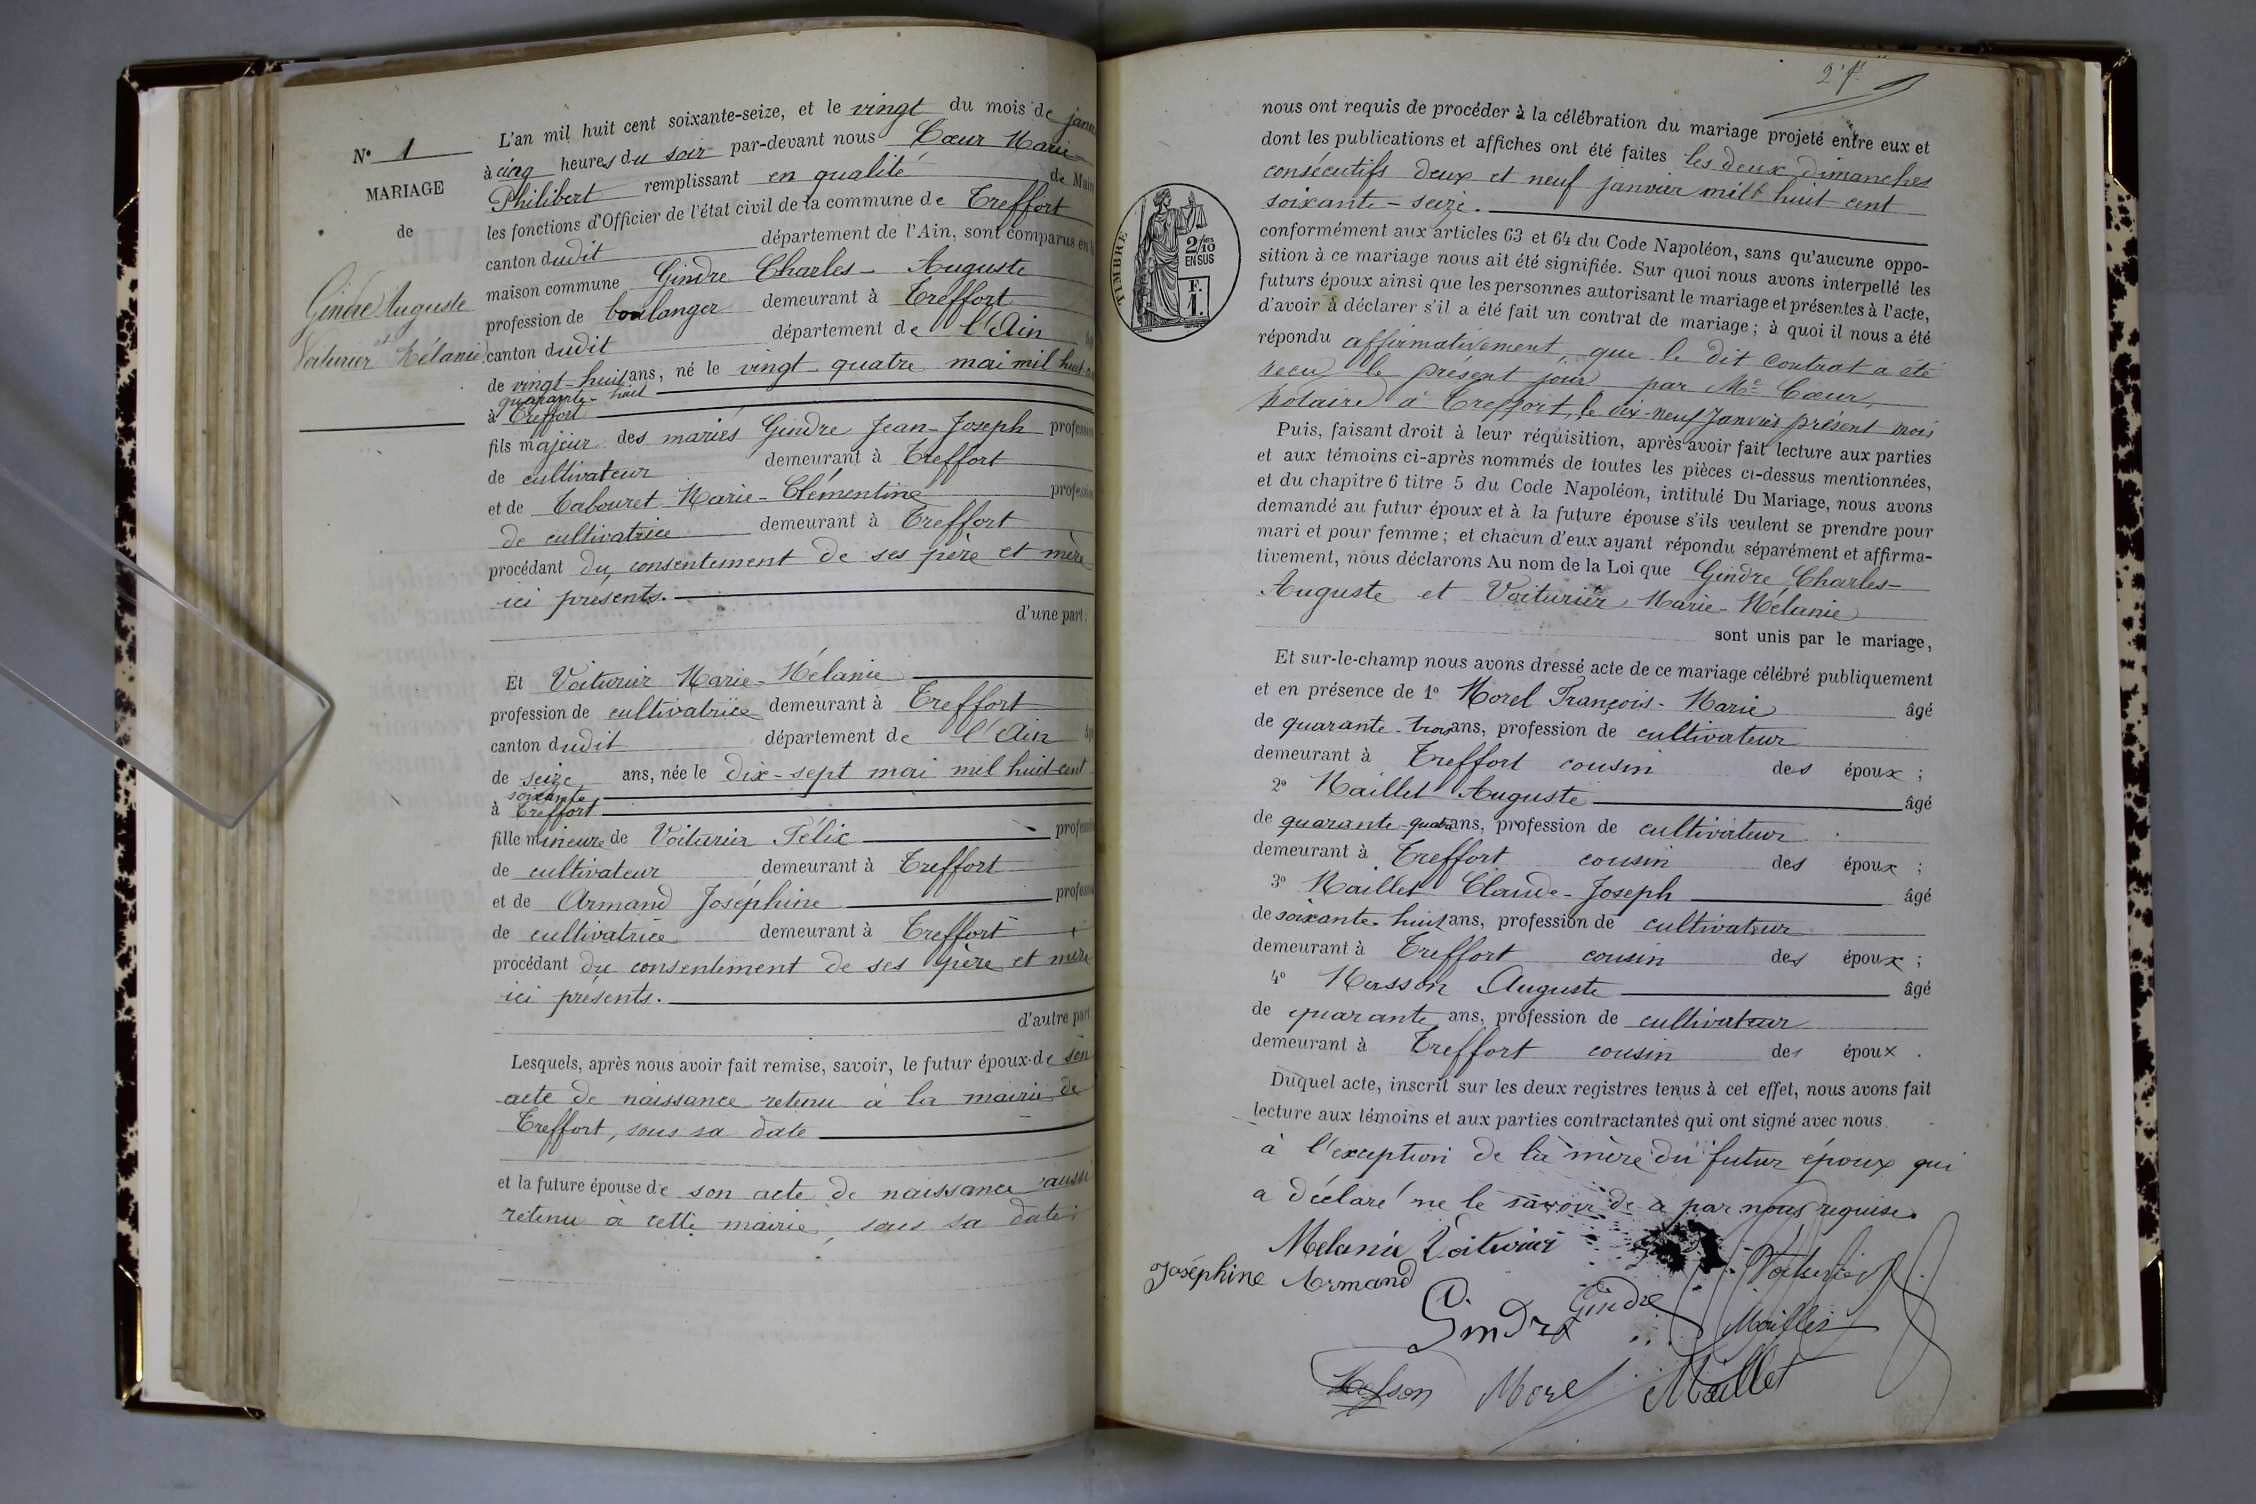 N° 1
MARIAGE
de
Gindre Auguste
et
Voiturier Mélanie
L'an mil huit cent soixante-seize, et le vingt du mois de janv
à cinq heures du soir par-devant nous Cœur Marie
Philibert remplissant en qualité de Maire
les fonctions d'Officier de l'état civil de la commune de Treffort
canton dudit département de l'Ain, sont comparus en la
maison commune Gindre Charles-Auguste
profession de boulanger demeurant à Treffort
canton dudit département de l'Ain âgé
de vingt-huit ans, né le vingt-quatre mai mil huit-cent
quarante-huit
à Treffort
fils majeur des mariés Gindre Jean-Joseph profession
de cultivateur demeurant à Treffort
et de Tabouret Marie-Clémentine profession
de cultivatrice demeurant à Treffort
procédant du consentement de ses père et mère
ici présents.
d'une part.
Et Voiturier Marie-Mélanie
profession de cultivatrice demeurant à Treffort
canton dudit département de l'Ain âgé
de seize ans, née le dix-sept mai mil huit-cent
soixante
à Treffort
fille mineure de Voiturier Félix profession
de cultivateur demeurant à Treffort
et de Armand Joséphine profession
de cultivatrice demeurant à Treffort
procédant du consentement de ses père et mère
ici présents.
d'autre part
Lesquels, après nous avoir fait remise, savoir, le futur époux de son
acte de naissance retenu à la mairie de
Treffort, sous sa date
et la future épouse de son acte de naissance aussi
retenu à cette mairie, sous sa date
2e f.t
TIMBRE
2/10es
EN SUS
F.
1.
nous ont requis de procéder à la célébration du mariage projeté entre eux et
dont les publications et affiches ont été faites les deux dimanches
consécutifs deux et neuf janvier mil huit cent
soixante-seize.
conformément aux articles 63 et 64 du Code Napoléon, sans qu'aucune oppo-
sition à ce mariage nous ait été signifiée. Sur quoi nous avons interpellé les
futurs époux ainsi que les personnes autorisant le mariage et présentes à l'acte,
d'avoir à déclarer s'il a été fait un contrat de mariage; à quoi il nous a été
répondu affirmativement, que le dit contrat a été
recu le présent jour par Me Cœur,
notaire à Treffort, le dix-neuf janvier présent mois
Puis, faisant droit à leur réquisition, après avoir fait lecture aux parties
et aux témoins ci-après nommés de toutes les pièces ci-dessus mentionnées,
et du chapitre 6 titre 5 du Code Napoléon, intitulé Du Mariage, nous avons
demandé au futur époux et à la future épouse s'ils veulent se prendre pour
mari et pour femme; et chacun d'eux ayant répondu séparément et affirma-
tivement, nous déclarons Au nom de la Loi que Gindre Charles-
Auguste et Voiturier Marie-Mélanie
sont unis par le mariage,
Et sur-le-champ nous avons dressé acte de ce mariage célébré publiquement
et en présence de 1° Morel François-Marie âgé
de quarante-trois ans, profession de cultivateur
demeurant à Treffort cousin des époux ;
2° Maillet Auguste âgé
de quarante-quatre ans, profession de cultivateur
demeurant à Treffort cousin des époux ;
3° Maillet Claude-Joseph âgé
de soixante-huit ans, profession de cultivateur
demeurant à Treffort cousin des époux ;
4° Masson Auguste âgé
de quarante ans, profession de cultivateur
demeurant à Treffort cousin des époux .
Duquel acte, inscrit sur les deux registres tenus à cet effet, nous avons fait
lecture aux témoins et aux parties contractantes qui ont signé avec nous
à l'exception de la mère du futur époux qui
a déclaré ne le savoir de ce par nous requise.
Melanie Voiturier
Joséphine Armand
Voiturier
Gindre
Gindre
Maillet
Masson Morel Maillet